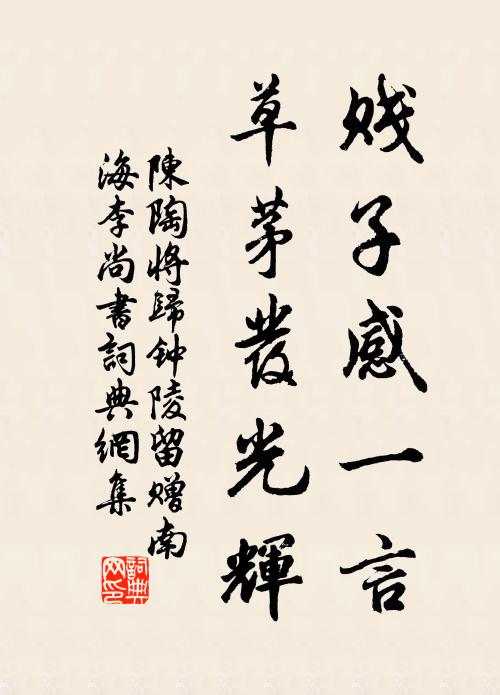 贱子感一言
草茅發光輝
陳陶将歸钟陵留赠南
海李尚書詞典網集
詞典网印